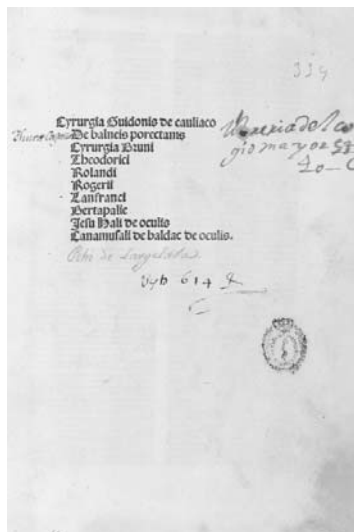 334
Cyrurgia Guidonis de cauliaco
De balneis porectanis
Cyrurgia Bruni
Theodorici
Rolandi
Rogerii
Lanfranci
Bertapalie
Jesu Hali de oculis
Canamusali de baldac de oculis.
de Largelata
614